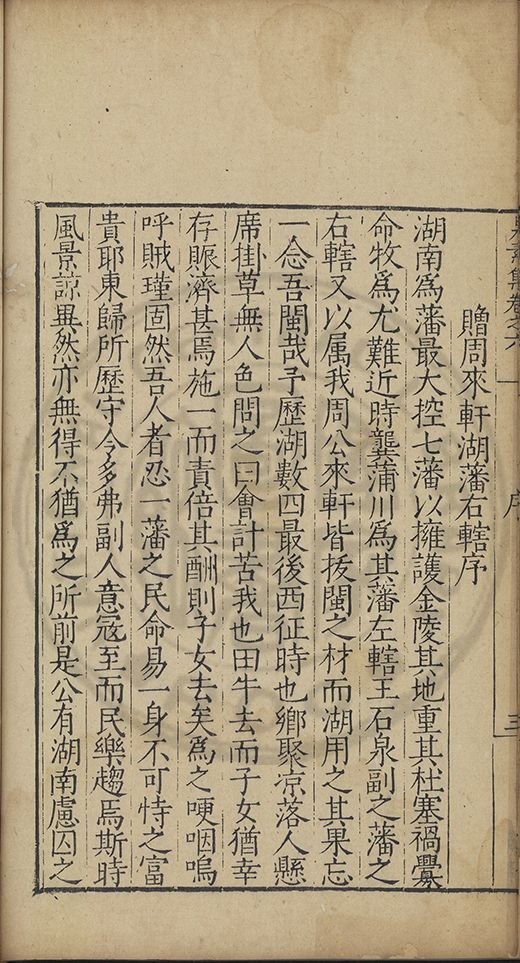 集卷之六
序
三
贈周來軒湖藩右轄序
湖南爲藩最大控七藩以擁護金陵其地重其杜塞禍釁
命牧爲尤難近時龔蒲川爲其藩左轄王石泉副之藩之
右轄又以屬我周公來軒皆拔閩之材而湖用之其果忘
一念吾閩哉予歷湖數四最後西征時也鄉聚凉落人懸
席掛草無人色問之曰會計苦我也田牛去而子女猶幸
存賑濟甚焉施一而責倍其酬則子女去矣爲之哽咽嗚
呼賊瑾固然吾人者忍一藩之民命易一身不可恃之富
貴耶東歸所歷守令多弗副人意寇至而民樂趨焉斯時
風景諒異然亦無得不猶爲之所前是公有湖南慮囚之